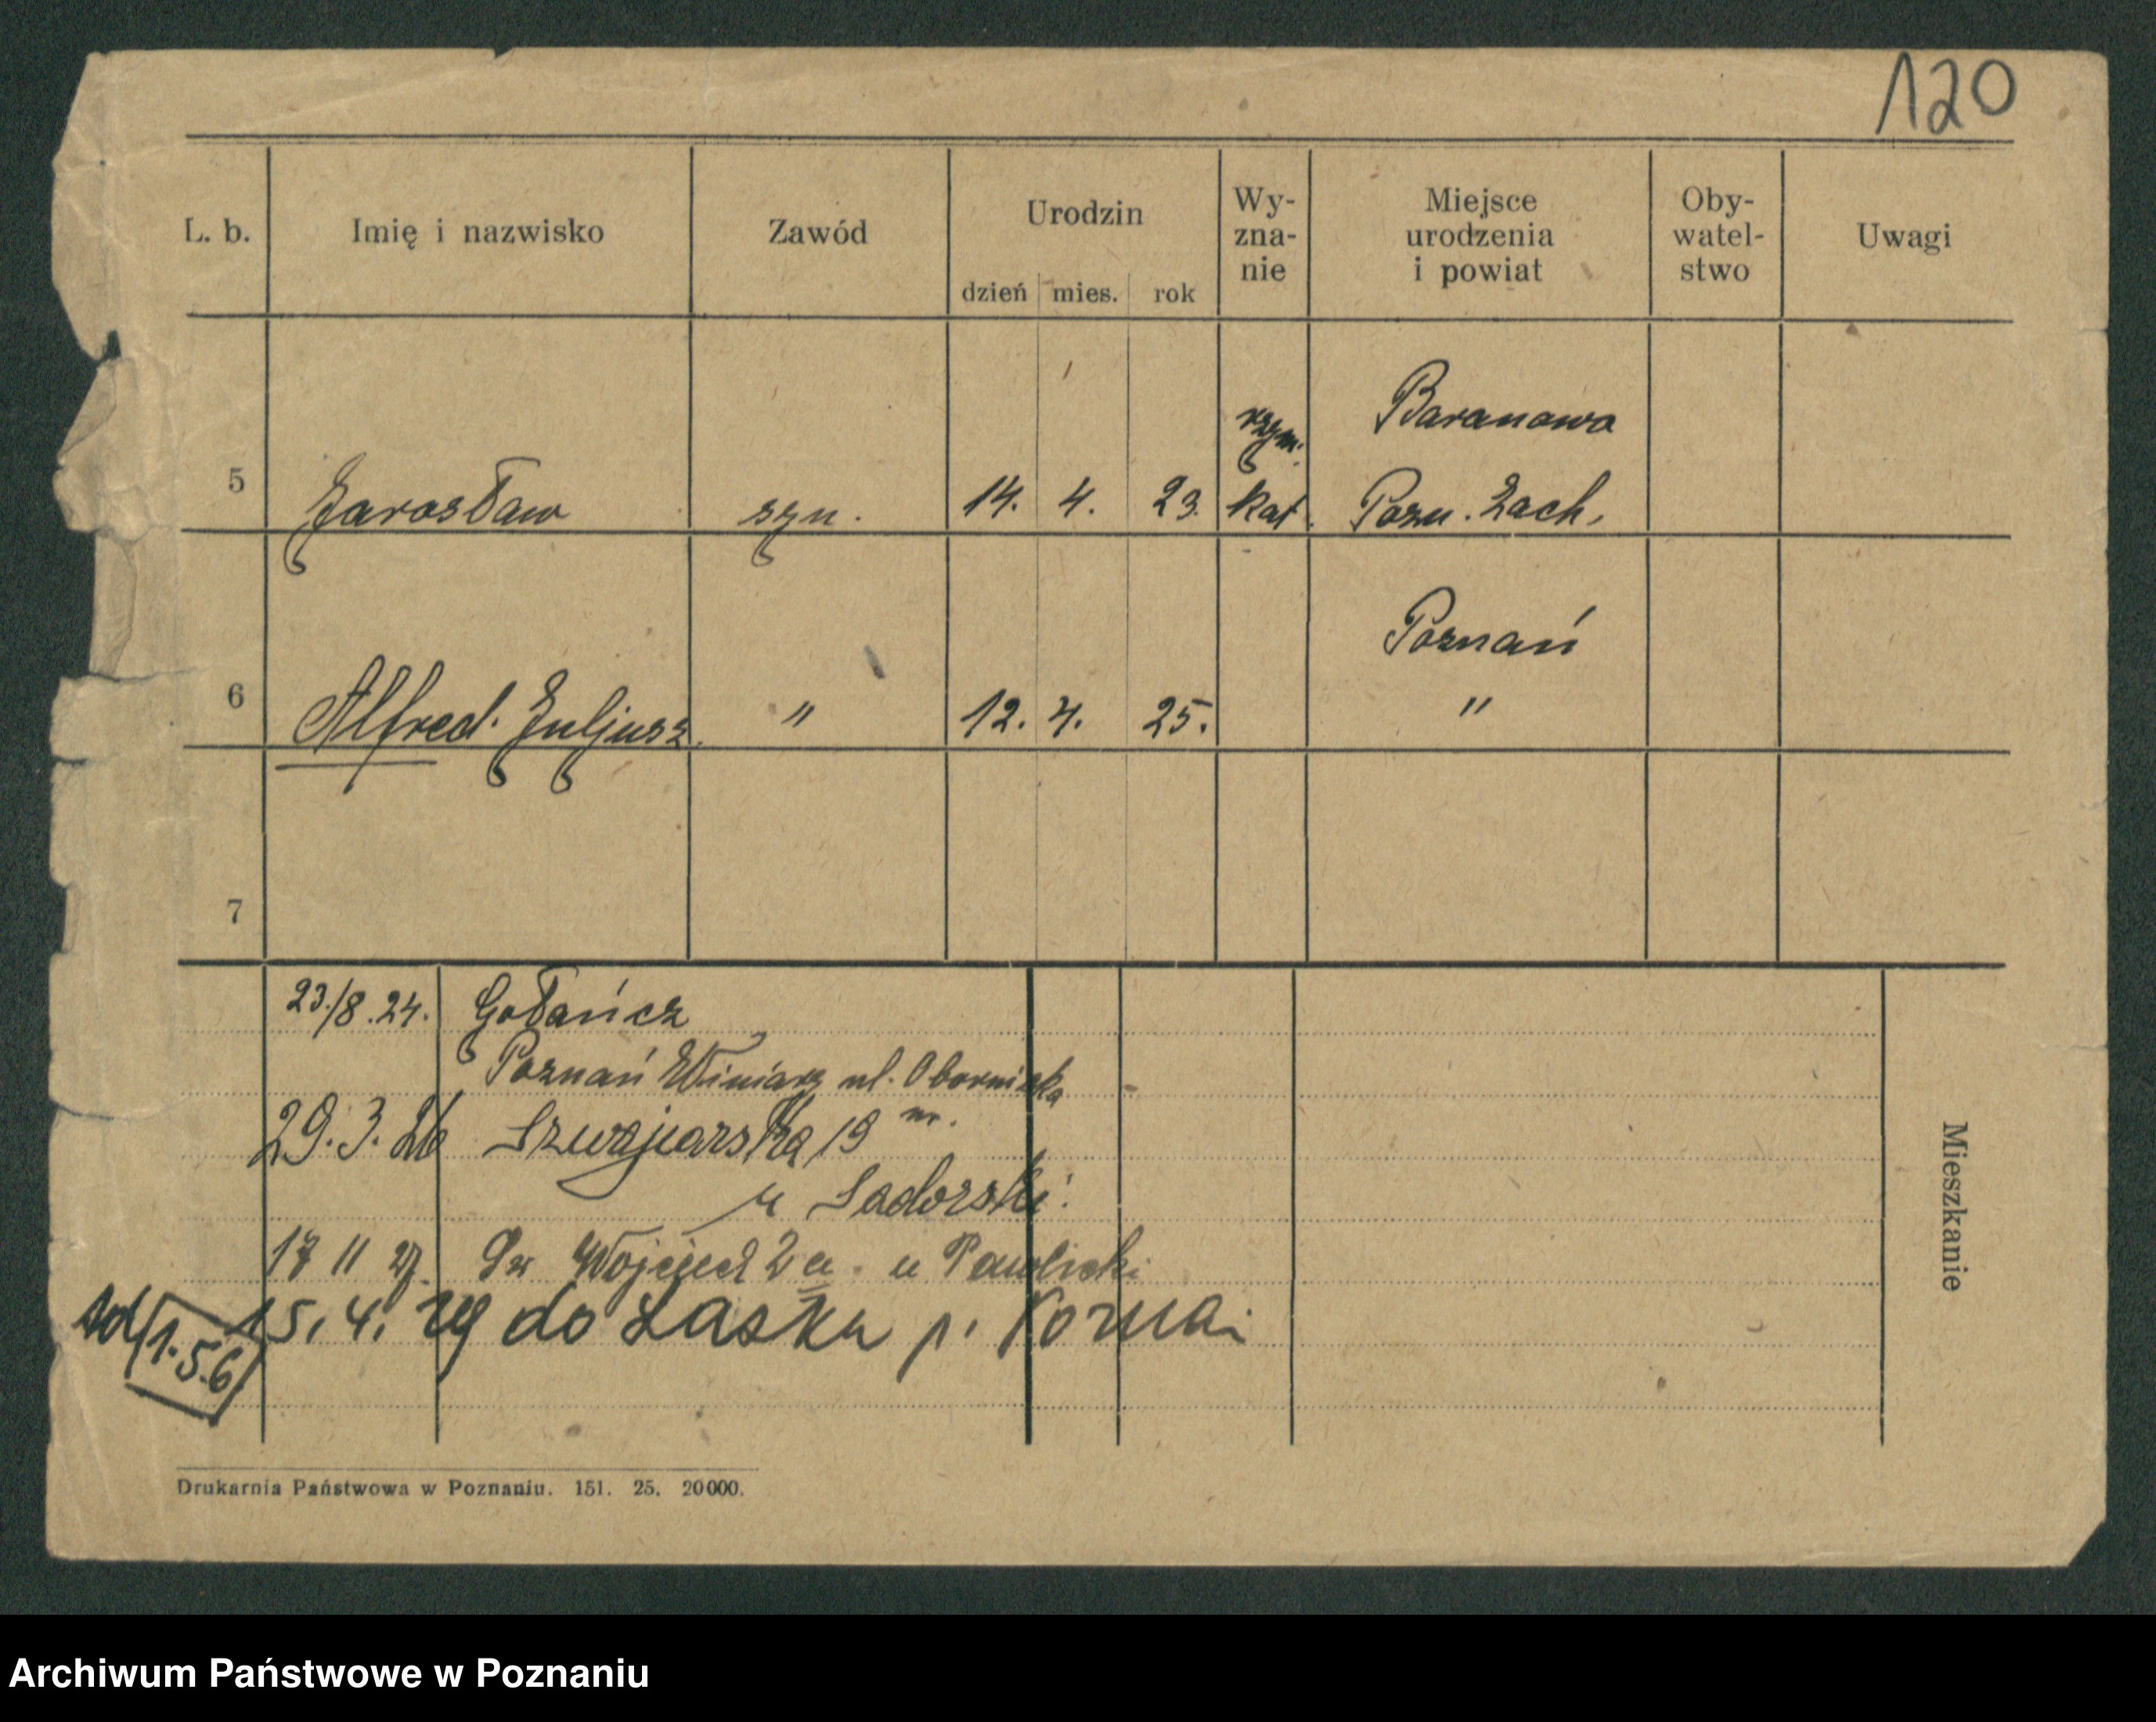 120
L. b. Imię i nazwisko Zawód Urodzin dzień mies. rok Wy- zna- nie Miejsce urodzenia i powiat Oby- watel- stwo Uwagi
rzym. Baranowo
5 Jarosław syn. 14. 4. 23. kat. Pozn. Zach.
Poznań
6 Alfred. Juljusz. " 12. 4. 25. "
7
23./8.24. Gołańcz
Poznań Winiary ul. Obornicka
29. 3. 26 Szwajcarska 19 nr.
u Sadorski
17 11 27. Św Wojciech 2 u Pawlicki
15. 4. 29 do Lasku p.
1.5.6
Mieszkanie
Drukarnia Państwowa w Poznaniu. 151. 25. 20000.
Archiwum Państwowe w Poznaniu